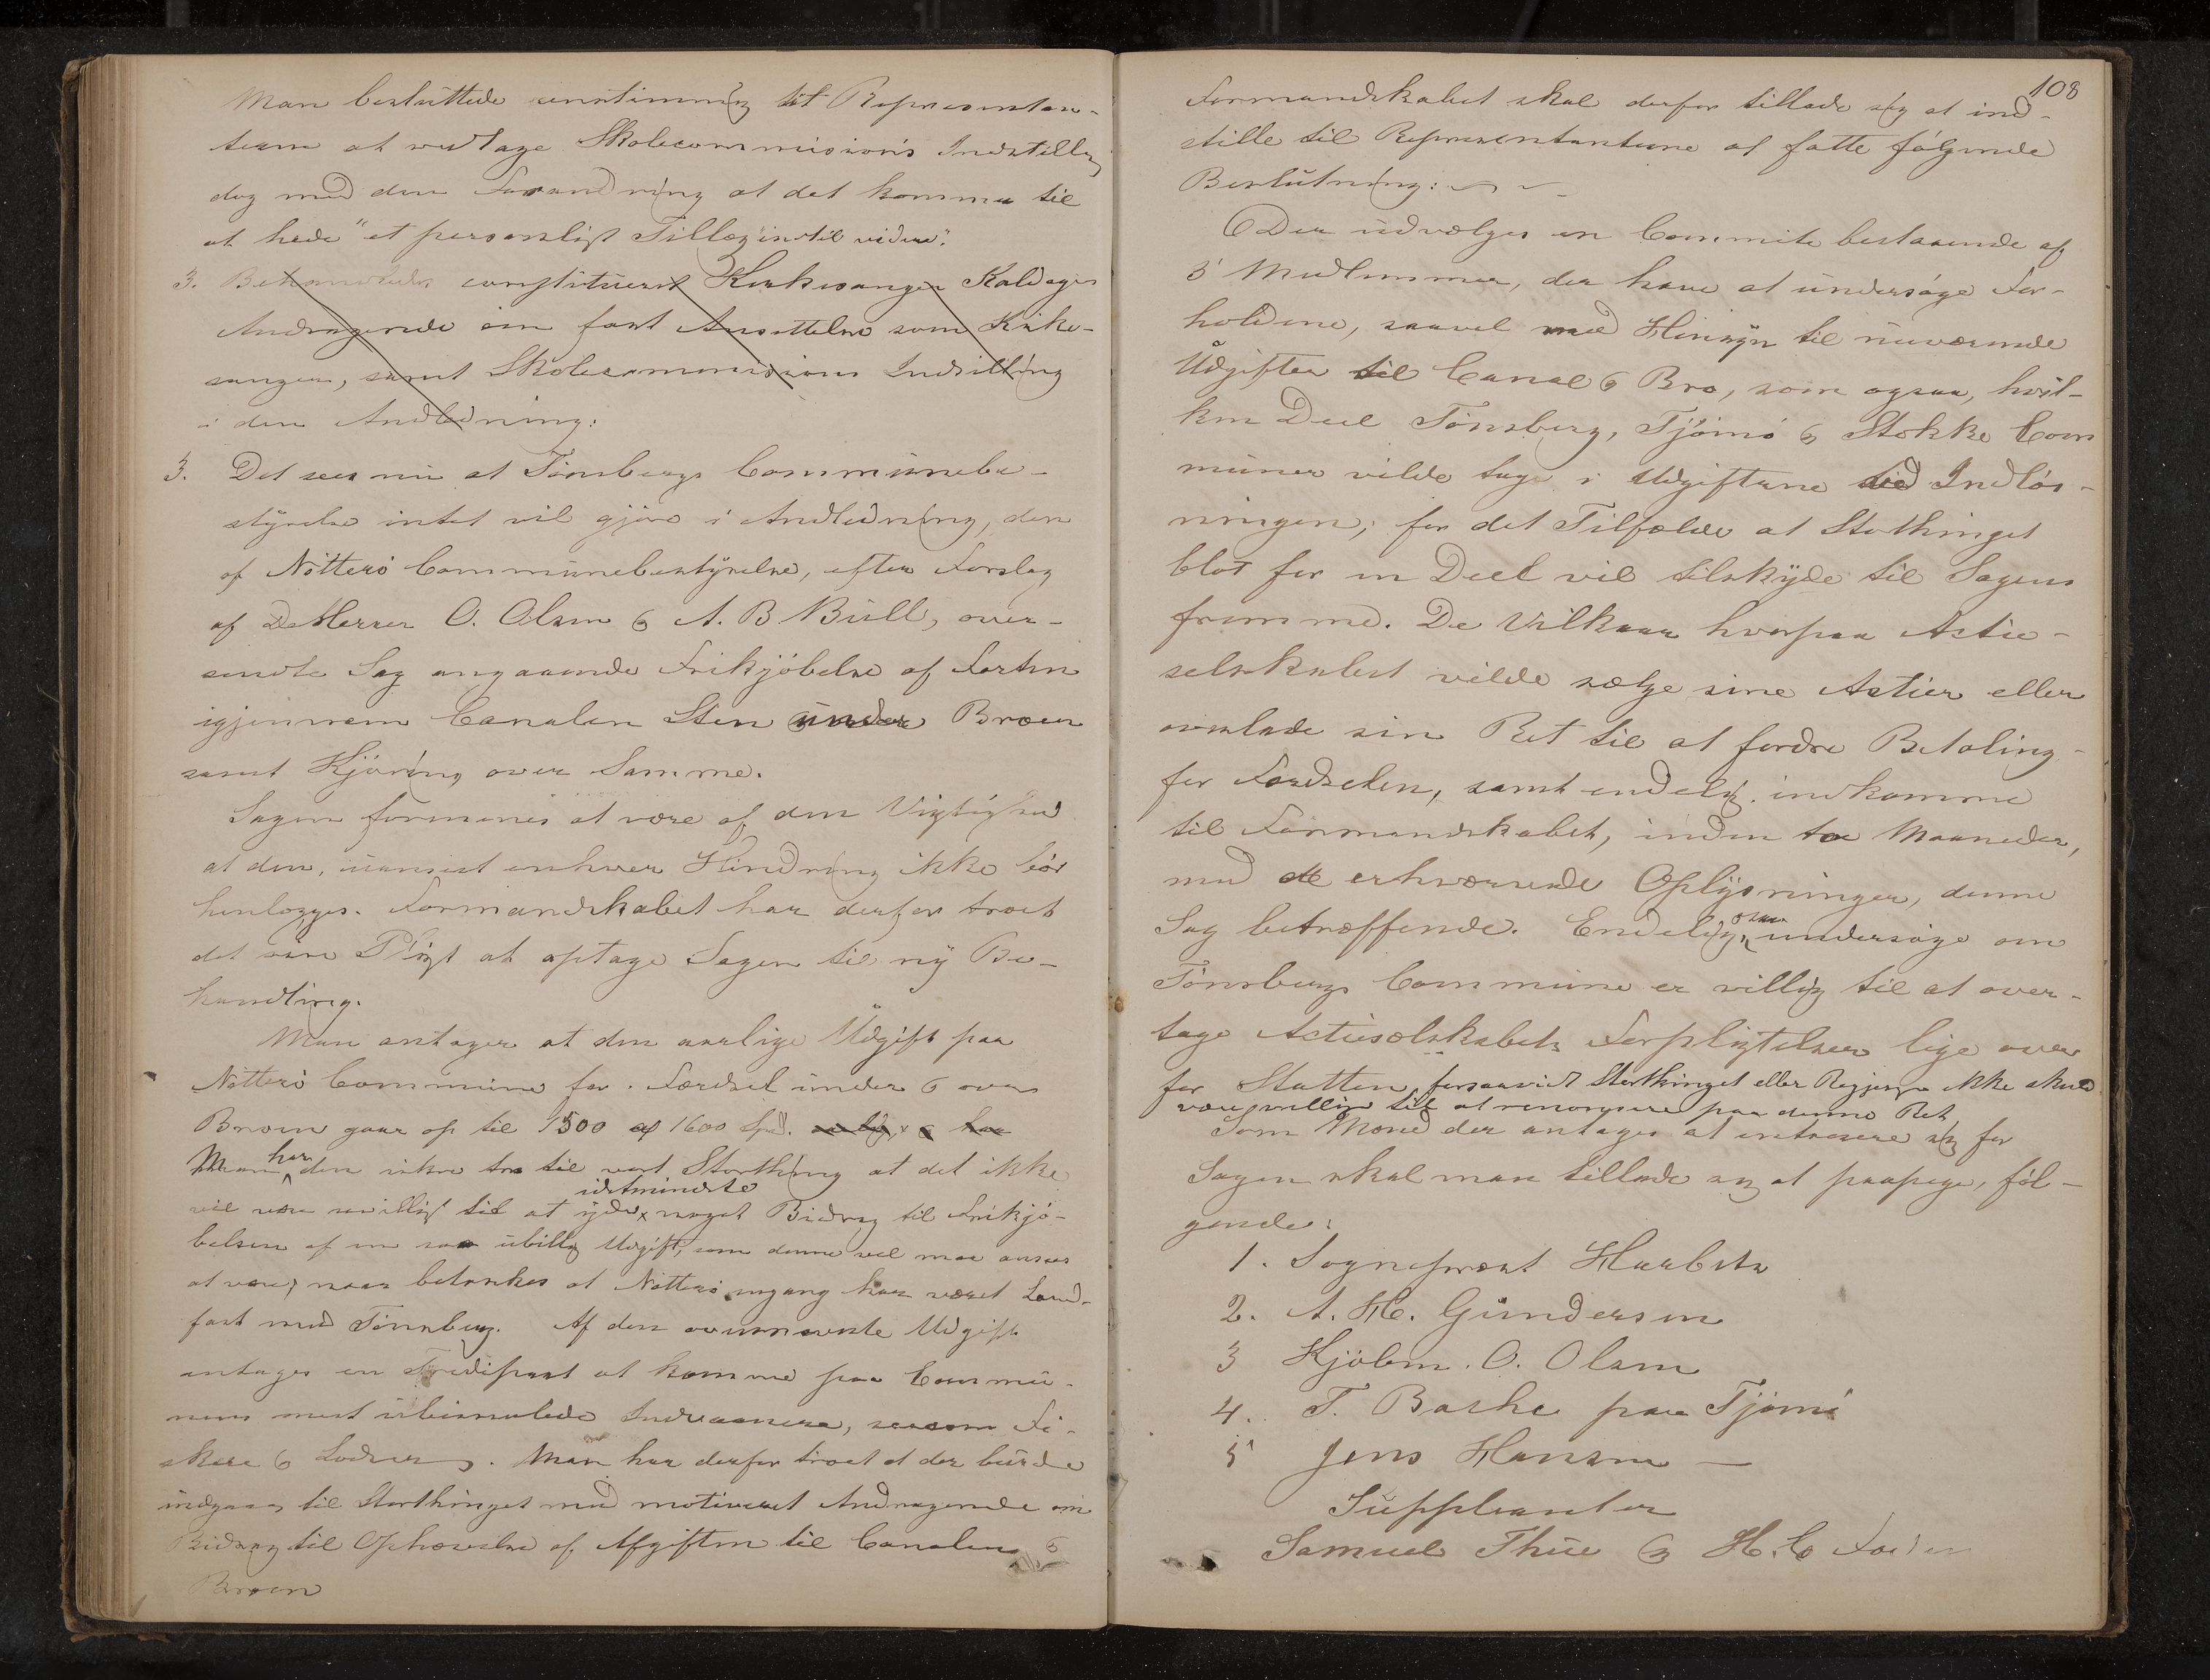 Man besluttede eenstimmig til Repræsentan-
terne at vedtage Skolecommisions Indstilling
dog med den Forandring at det kommer til
at hede "et personligt Tillæg indtil videre".
3. Behandledes constitueret Kirkesanger Kaldager
Andragende om fast Ansettelse som Kirke-
sanger, samt Skolecommisions Indstilling
i den Anledning:
3. Det sees nu at Tönsbergs Communebe-
styrelse intet vil gjöre i Anledning, den
af Nötterö Communebestyrelse, efter Forslag
af De Herrer O. Olsen & A. B Bull, over-
sendte Sag angaaende Frikjöbelse af Farten
igjennem Canalen Sten under Broen
samt Kjöring over Samme.
Sagen formenes at være af den Vigtighed
at den, uanseet enhver Hindring ikke bör
henlægges. Formandskabet har derfor troet
det sin Pligt at optage Sagen til ny Be-
handling.
Man antager at den aarlige Udgift paa
Nötterö Commune for Færdsel under & over
Broen gaar op til 1500 a 1600 Spd.
Man har den sikre tro til vort Storthing at det ikke
vil være uvilligt til at yde idetmindste noget Bidrag til Frikjö-
belsen af en saa ubillig Udgift, som denne vel maa ansees
at være, naar betænkes at Nötterö engang har været Land-
fast med Tönsberg. Af den ovennævnte Udgift
antages en Trediepart at komme paa Commu-
nens mest ubemidlede Indvaanere, saasom Fi-
skere & Lodser. Man har derfor troet at der burde
indgaaes til Storthinget med motiveret Andragende om
Bidrag til Ophævelse af Afgiften til Canalen &
Broen
108
Formandskabet skal derfor tillade sig at ind-
stille til Repræsentanterne at fatte fölgende
Beslutning:
Der udvælges en Committe bestaaende af
5 Medlemmer, der have at undersöge For-
holdene, saavel med Hensyn til nuværende
Udgifter til Canal & Bro, som ogsaa, hvil-
ken Deel Tönsberg, Tjömö & Stokke Com
muner vilde tage i Udgifterne ved Indlös-
ningen, for det Tilfælde at Storthinget
blot for en Deel vil tilskyde til Sagens
fremme. De Vilkaar hvorpaa Actie-
selskabet vilde sælge sine Actier eller
overlade sin Ret til at fordre Betaling
for Færdselen, samt endelig indkomme
til Formandskabet, inden to Maaneder,
med de erhvervede Oplysninger, denne
Sag betræffende. Endelig, ogsaa undersöge om
Tönsbergs Commune er villig til at over-
tage Actieselskabets Forpligtelser lige over
for Statten, forsaavidt Storthinget eller Regjeringen ikke skulde
være villig til at renonsere paa denne Ret
Som Mænd der antages at intresere sig for
Sagen skal man tillade sig at paapege, föl-
gende:
1. Sogneprest Harbitz
2. A. H. Gundersen
3 Kjöbm. O. Olsen
4. T. Bache paa Tjömö
5 Jens Hansen —
Suppleanter
Samuel Thue & H. C